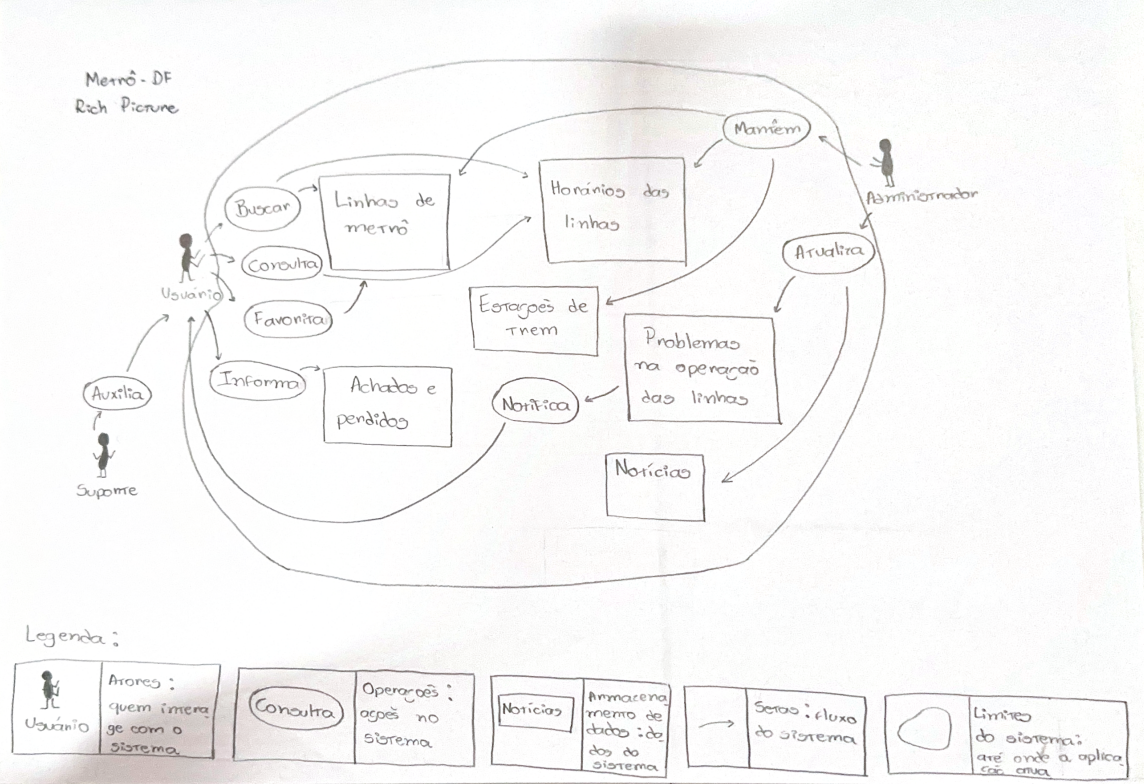 Metrô - DF
Rich Picture
Mantêm
Administrador
Buscar
Linhas de
metrô
Horários das
linhas
Consulta
Atualiza
Usuário
Favorita
Estações de
trem
Problemas
na operação
das linhas
Informa
Achados e
perdidos
Notifica
Auxilia
Suporte
Notícias
Legenda:
Usuário
Atores:
quem intera
ge com o
sistema
Consulta
Operações:
ações no
sistema
Notícias
Armazena
mento de
dados: da
dos do
sistema
Setas: fluxo
do sistema
Limites
do sistema:
até onde a aplica
ção atua